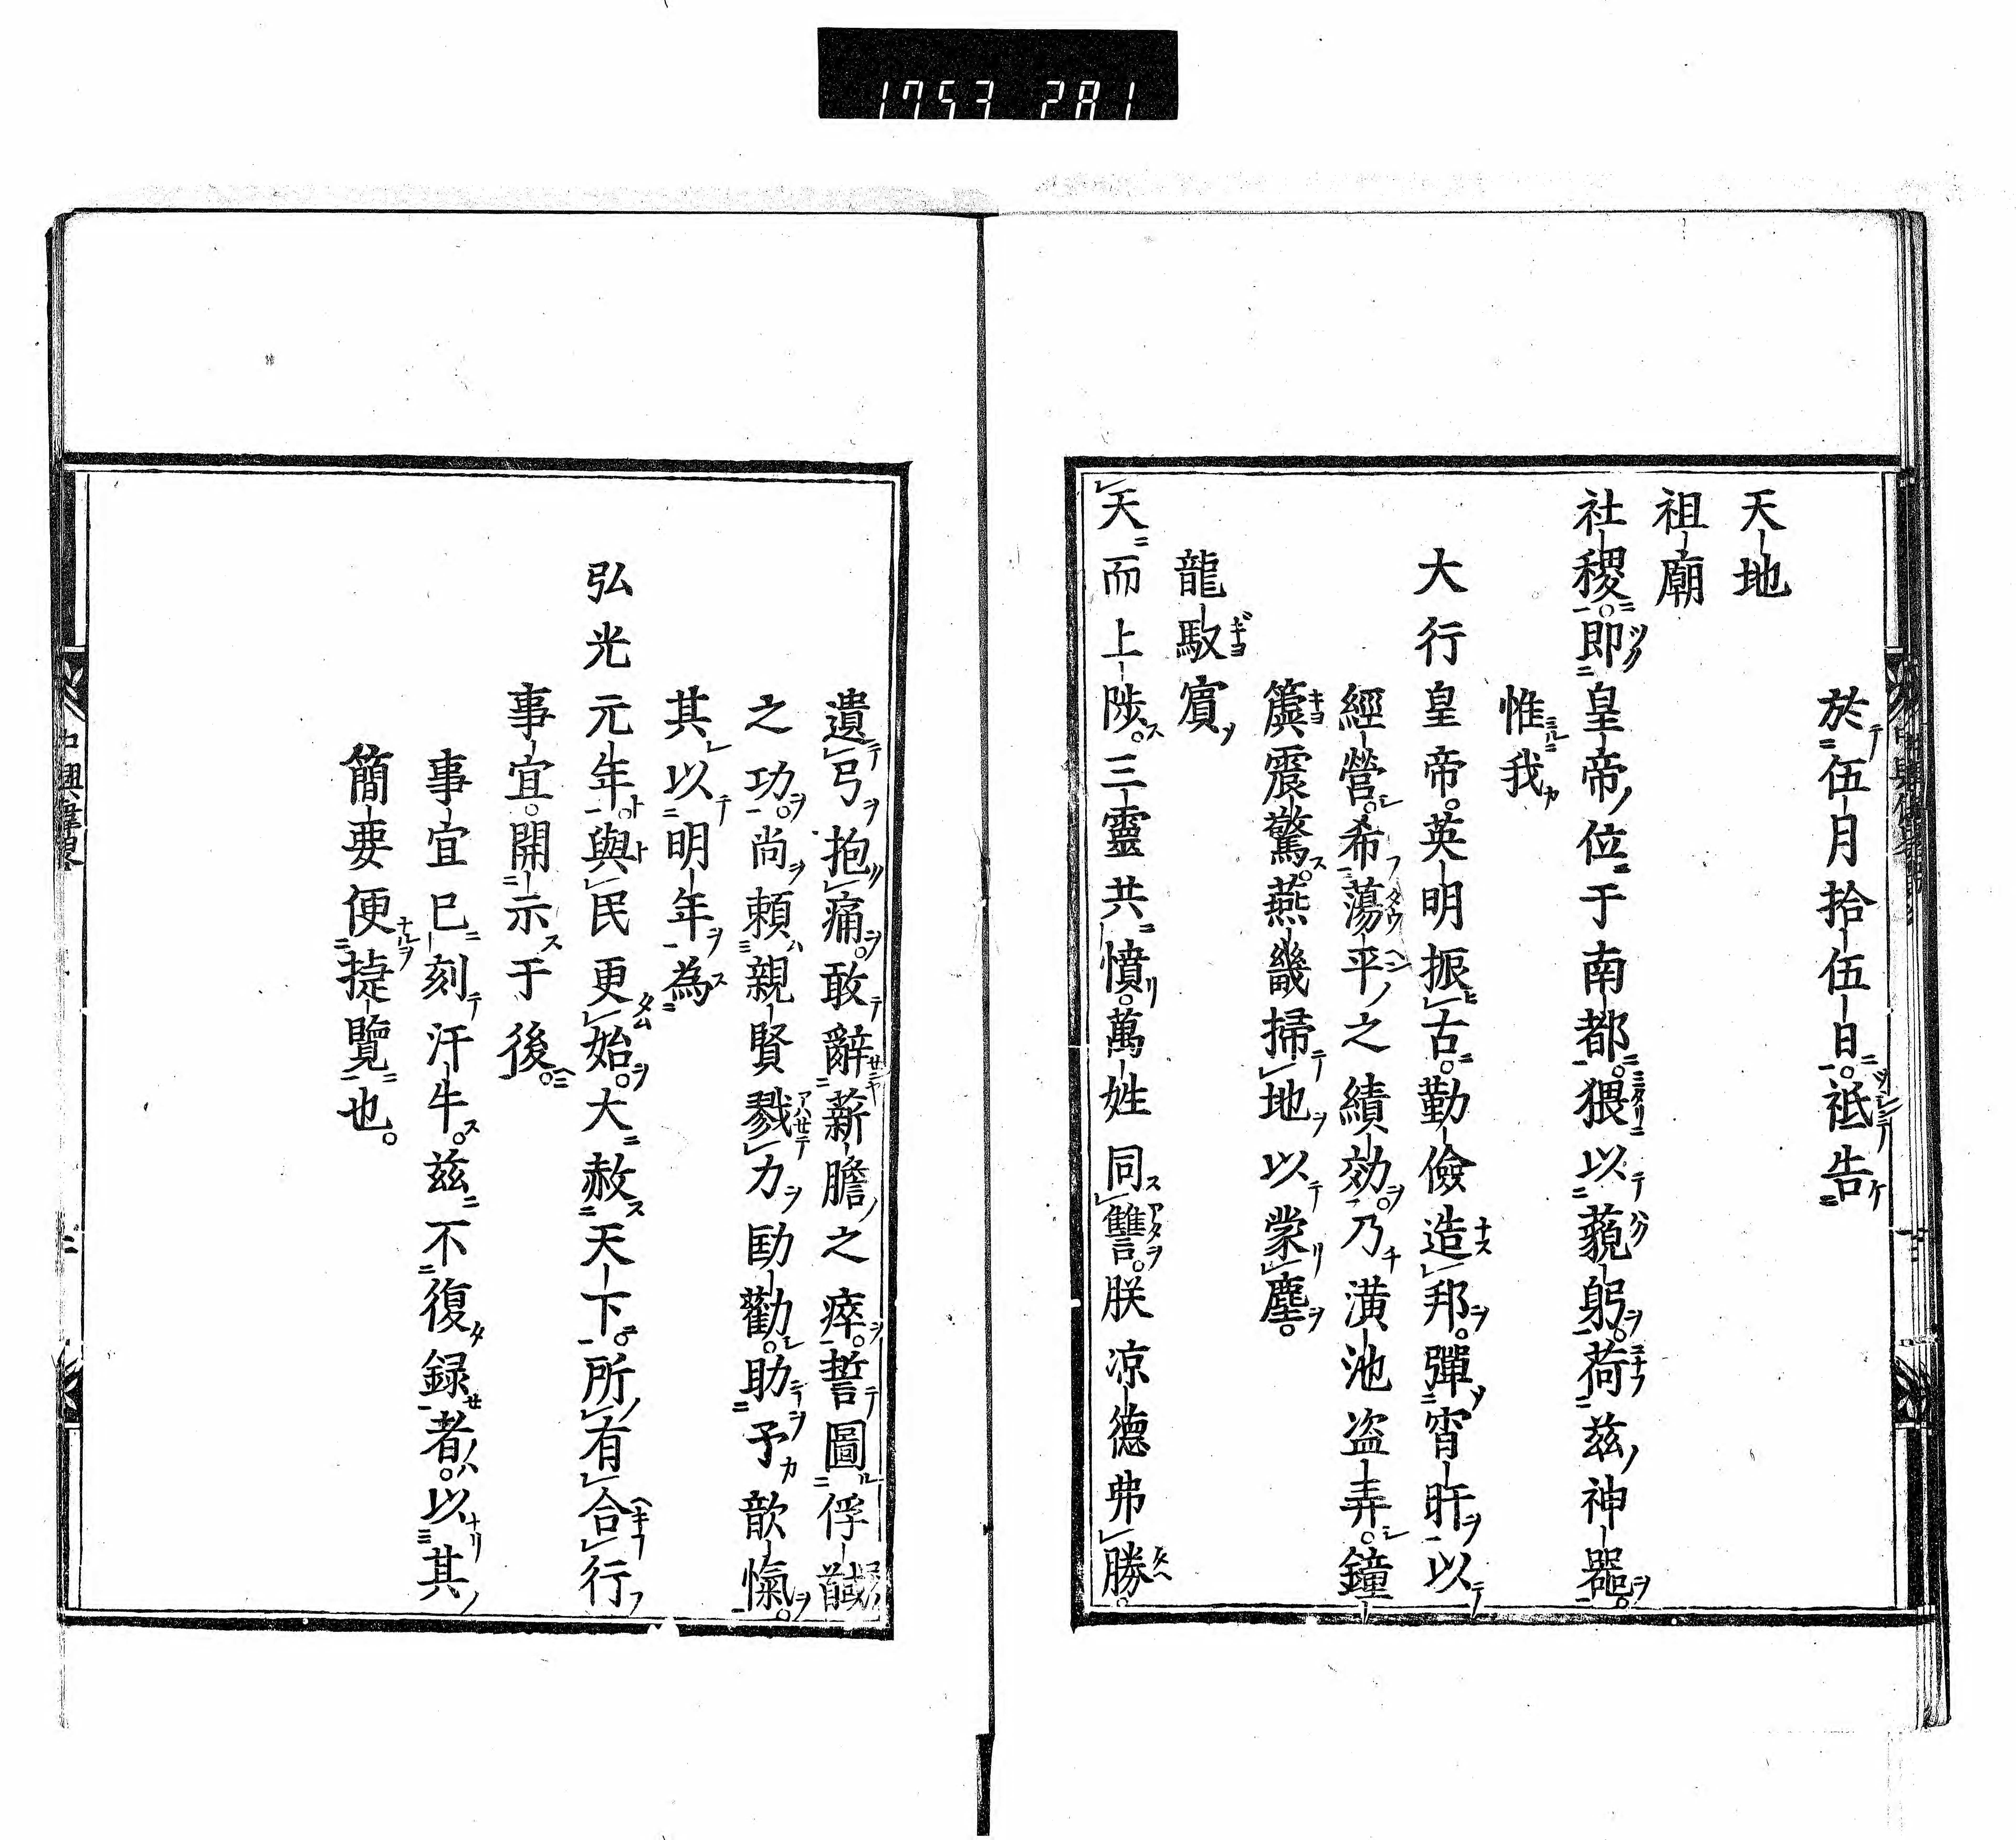 1753 281
於伍月拾伍日。祗告
天地
祖廟
社稷。即皇帝位于南都。猥以藐躬。荷茲神器。
惟我
大行皇帝。英明振古。勤儉造邦。殫宵旰以
經營。希蕩平之績効。乃潢池盗弄。鐘
簴震驚。燕畿掃地以蒙塵。
龍馭賓
天而上陟。三靈共憤。萬姓同讐。朕凉德弗勝。
遺弓抱痛。敢辭薪膽之瘁。誓圖俘馘
之功。尚頼親賢戮力劻勷。助予敵愾。
其以明年為
弘光元年。與民更始。大赦天下。所有合行
事宜。開示于後。
事宜已刻汗牛。茲不復録者。以其
簡要便捷覽也。